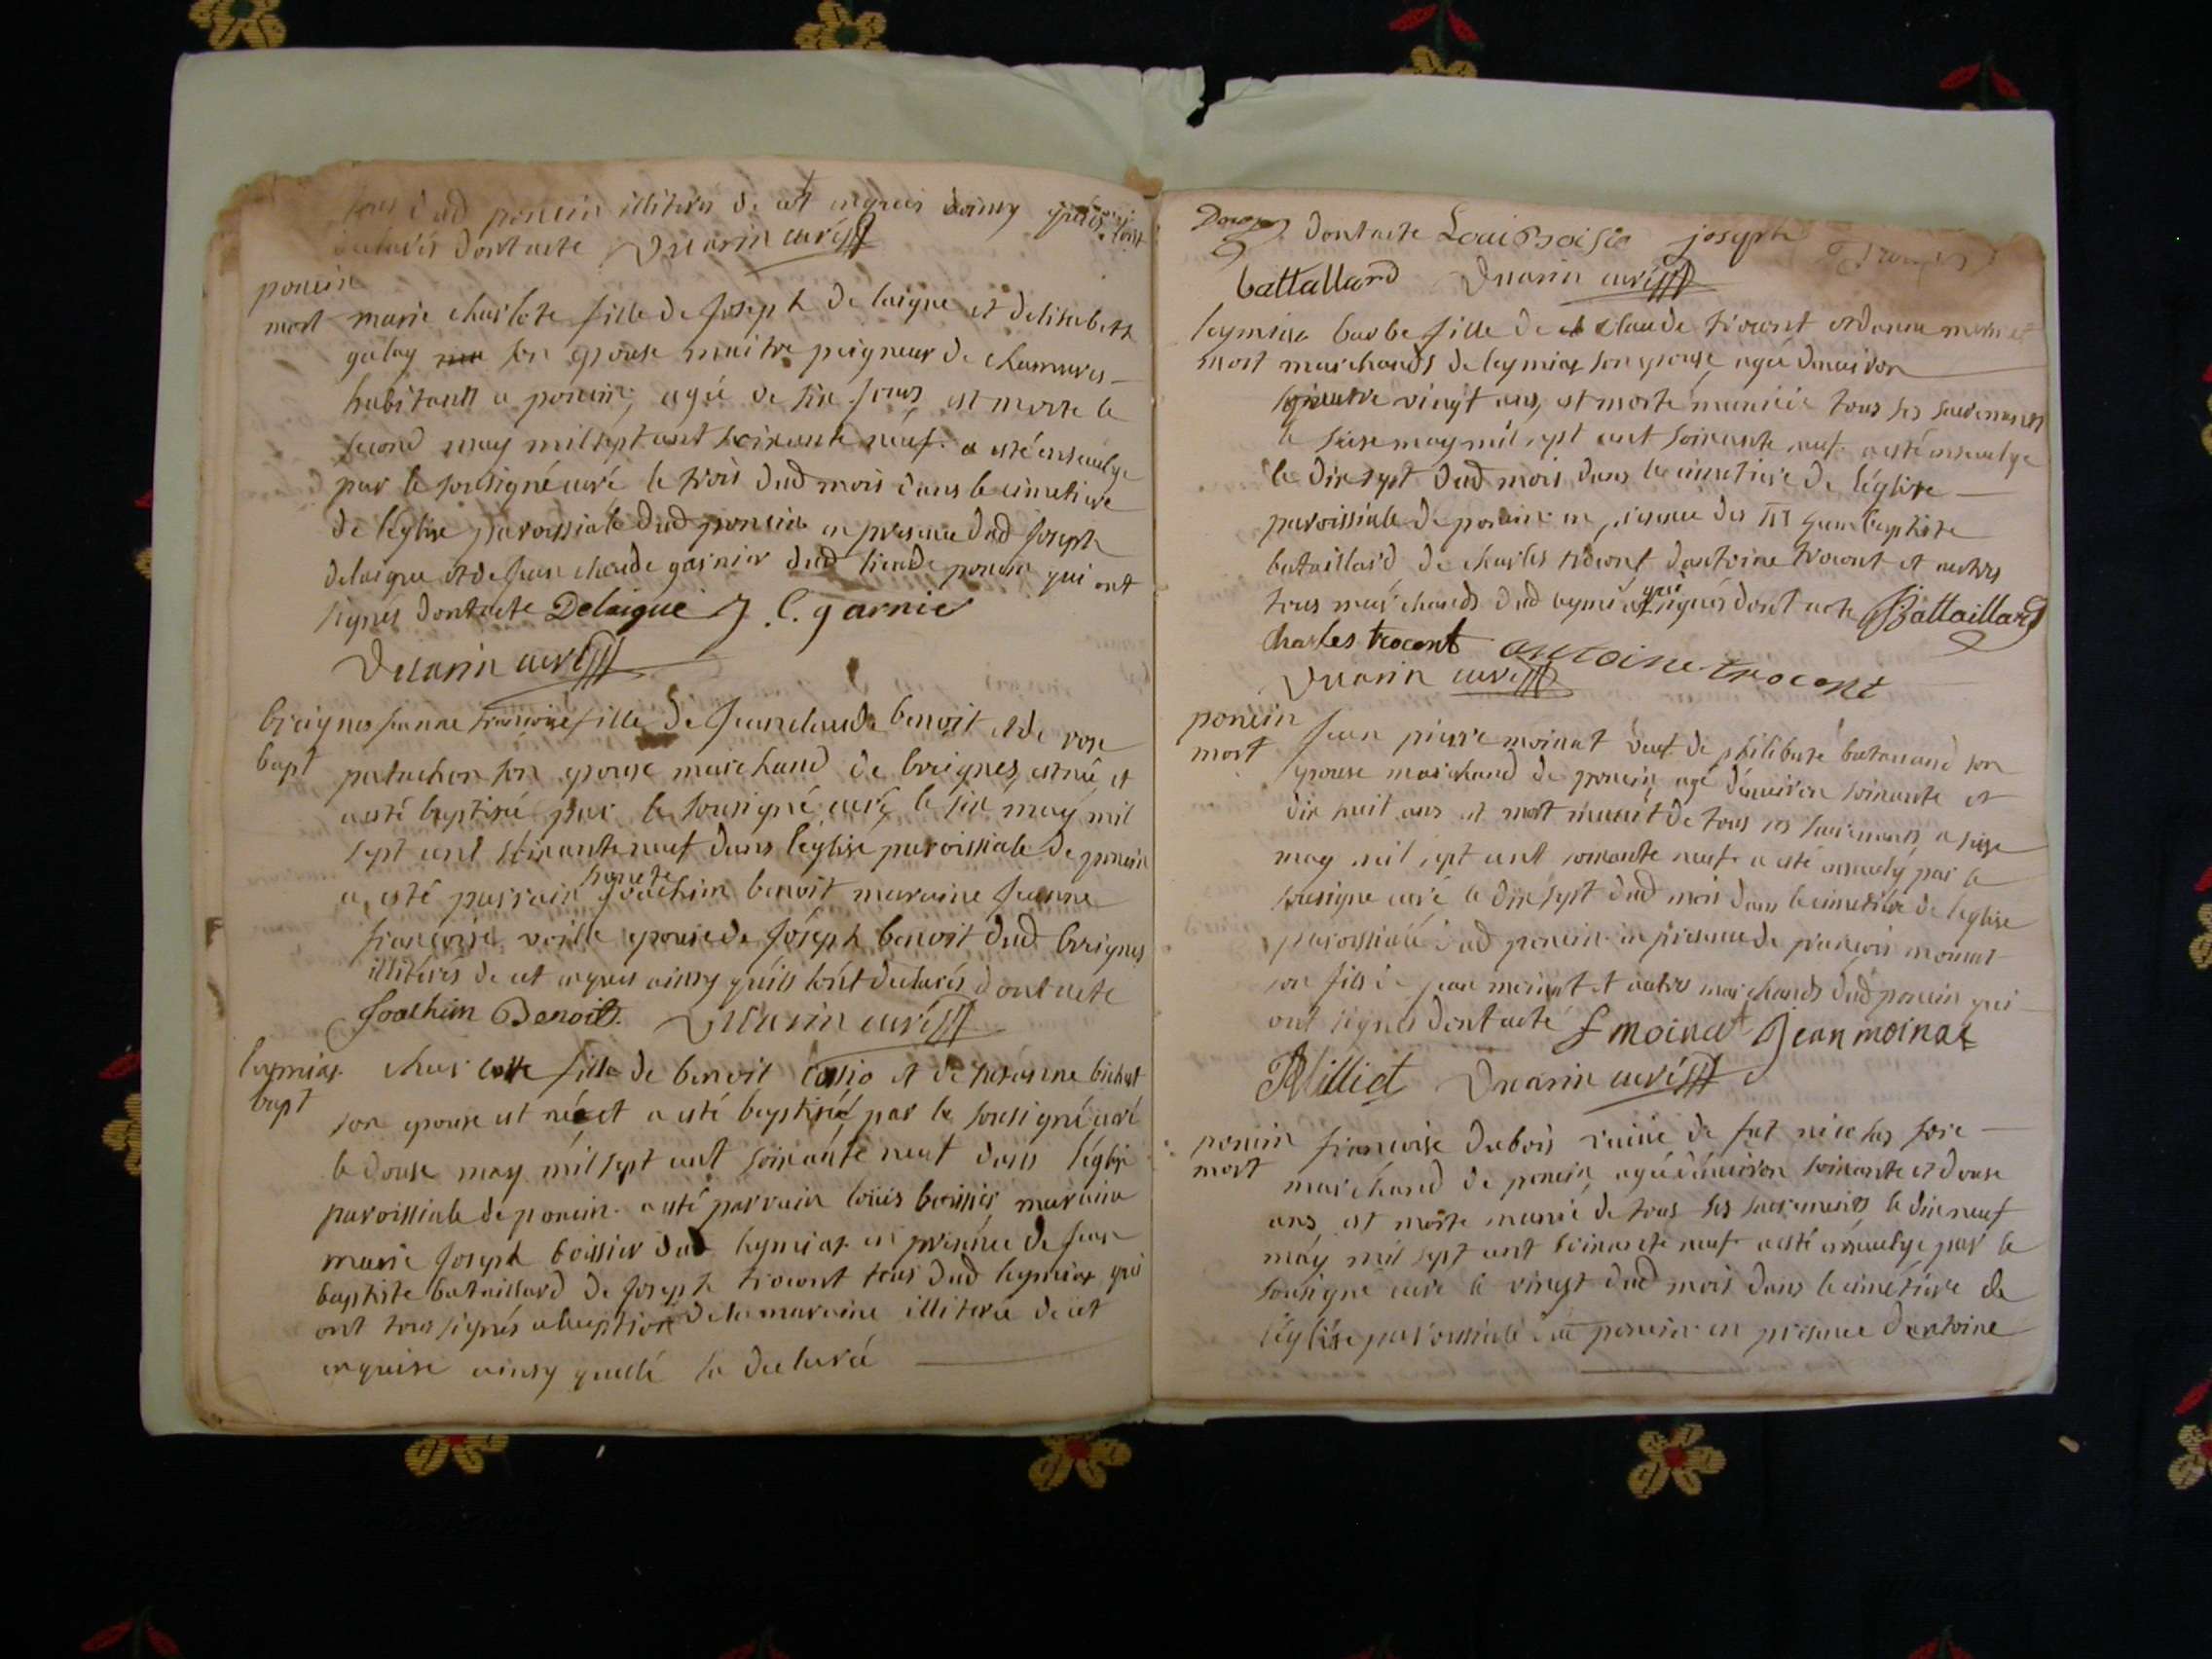 tous dud poncin illiterés de cet enquis ainsy quils sont
declarés dont acte Ducarin curé
poncin
mort marie charlote fille de joseph de laigue et delisabeth
galay son epouse maitre peigneur de chanvres
habitants a poncin, agée de six jours est morte le
second may mil sept cent soixante neuf a esté ensevelye
par le sousigné curé le trois dud mois dans le cimetiere
de léglise paroissiale dud poncin en presence dud joseph
delaigue et de jean claude garnier dud lieu de poncin qui ont
signés dont acte Delaigue J. C. garnier
Ducarin curé
breignes jeanne francoise fille de jean claude benoit et de rose
bapt patuchon son epouse marchand de breignes est née et
a esté baptisée par le sousigné curé le six may mil
sept cent soixante neuf dans léglise paroissiale de poncin
a esté parrain honete joachim benoit maraine jeanne
francoise epouse de joseph benoit dud breignes
illiterés de cet enquis ainsy quils sont declarés dont acte
Joachim Benoit Ducarin curé
leymiax charlotte fille de benoit et de suzanne bichat
bapt
son epouse est née et a esté baptisée par le sousigné curé
le douse may mil sept cent soixante neuf dans léglise
paroissiale de poncin a esté parrain loüis boissier, maraine
marie joseph boissier dud leymiax en presence de jean
baptiste bataillard de joseph trocont tous dud leymiax qui
ont tous signés a lexeption de la maraine illiterée de cet
enquise ainsy quelle la declaré
dont acte Loui joseph
battallard Ducarin curé
leymiax barbe fille de claude trocont et danne
mort marchands de leymiax son epouse, agée denviron
quatre vingt ans, est morte munie de tous ses sacrements
le seise may mil sept cent soixante neuf a esté ensevelye
le dix sept dud mois dans le cimetiere de léglise
paroissiale de poncin en presence des srs jean baptiste
bataillard de charles trocont dantoine trocont et autres
tous marchands dud leymiax qui signés dont acte Battaillard
charles trocont antoine trocont
Ducarin curé
poncin
mort jean pierre moinat veuf de philiberte son
epouse marchand de poncin agé denviron soixante et
dix huit ans est mort munit de tous ses sacrements a seise
may mil sept cent soixante neuf a esté ensevely par le
sousigné curé le dix sept dud mois dans le cimetiere de léglise
paroissiale dud poncin en presence de françois moinat
son fils de jean moinat et autres marchands dud poncin qui
ont signés dont acte f moinat jean moinat
Milliet Ducarin curé
poncin francoise dubois veuve de fut nicolas
mort marchand de poncin agée denviron soixante et douse
ans est morte munie de tous ses sacrements le dix neuf
may mil sept cent soixante neuf a esté ensevelye par le
sousigné curé le vingt dud mois dans le cimetiere de
léglise paroissiale dud poncin en presence dantoine